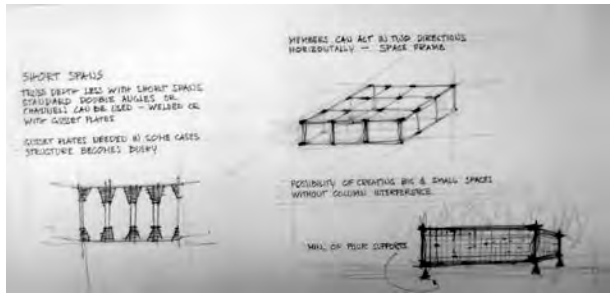 SHORT SPANS
TRUSS DEPTH LESS WITH SHORT SPANS
STANDARD DOUBLE ANGLES OR
CHANNELS CAN BE USED - WELDED OR
WITH GUSSET PLATES
GUSSET PLATES NEEDED IN SOME CASES
STRUCTURE BECOMES BULKY
MEMBERS CAN ACT IN TWO DIRECTIONS
HORIZONTALLY - SPACE FRAME
POSSIBILITY OF CREATING BIG & SMALL SPACES
WITHOUT COLUMN INTERFERENCE.
MIN. OF FOUR SUPPORTS